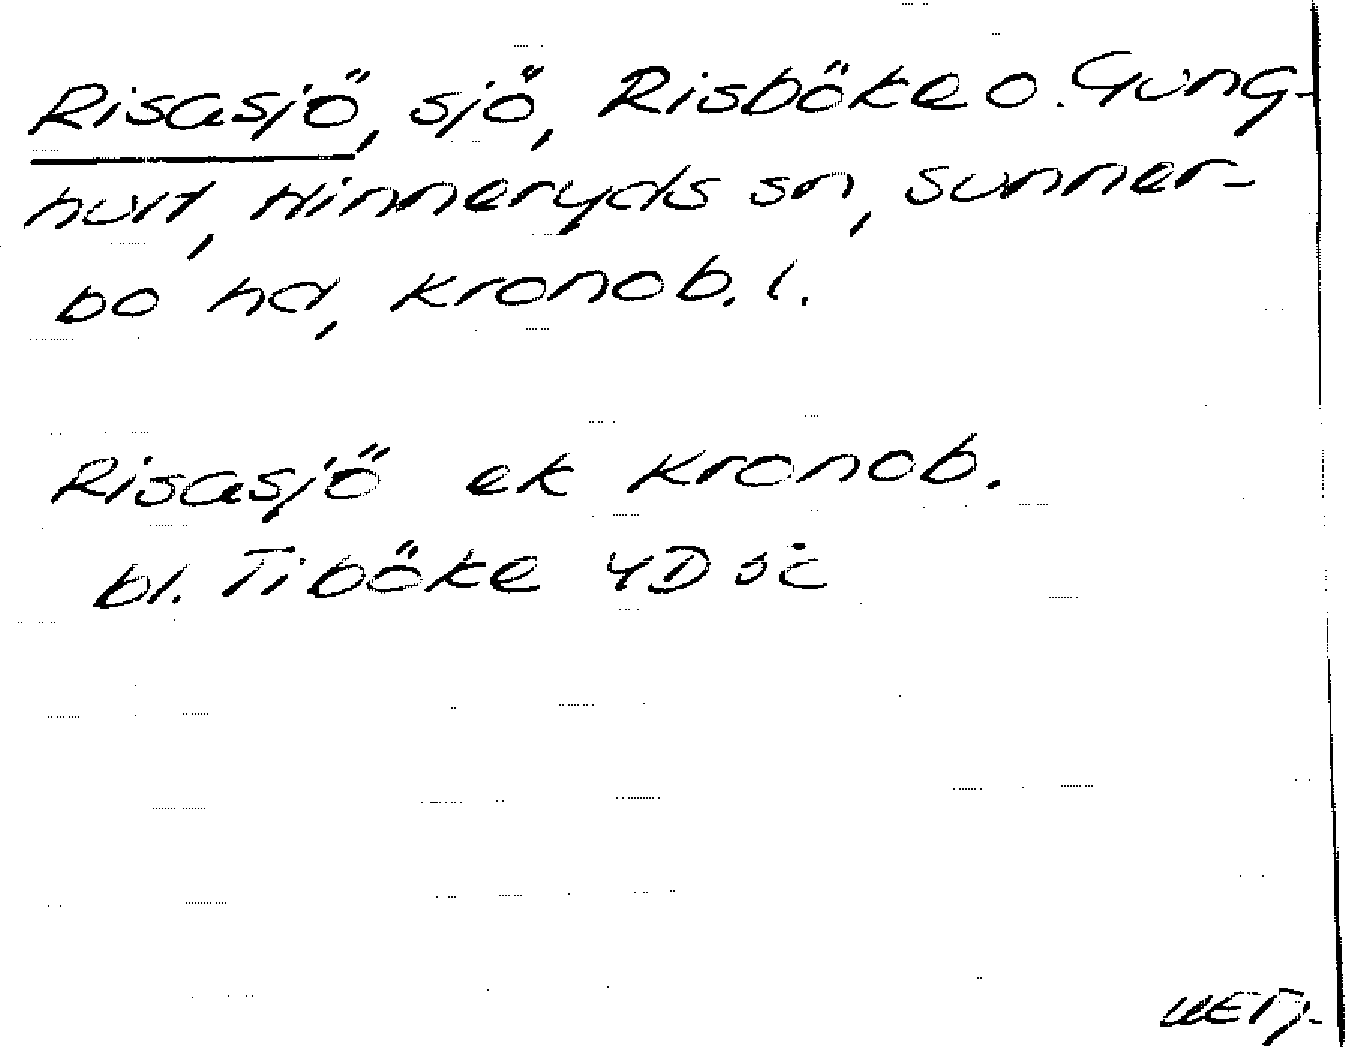 Risasjö, sjö, Risböke o. Gung-
hult, Hinneryds sn, Sunner-
bo hd, Kronob. l.
Risasjö ek Kronob.
bl. Tiböke 4D